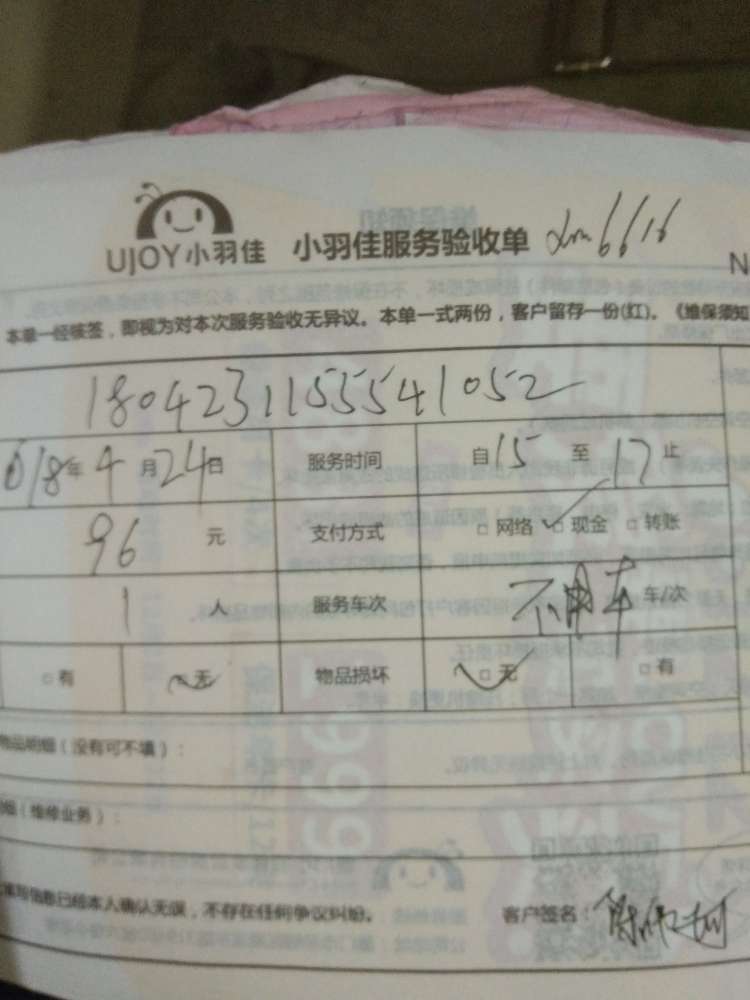 UJOY小羽佳 小羽佳服务验收单 xm6616
N
本单一经核签，即视为对本次服务验收无异议。本单一式两份，客户留存一份(红)。《维保须知
1804231155541052
018年4月24日 服务时间 自15至17止
96元 支付方式 □网络 □现金 □转账
1人 服务车次 不用车 车/次
□有 □无 物品损坏 □无 □有
物品明细（没有可不填）：
细（维修业务）：
信息已经本人确认无误，不存在任何争议纠纷。 客户签名：